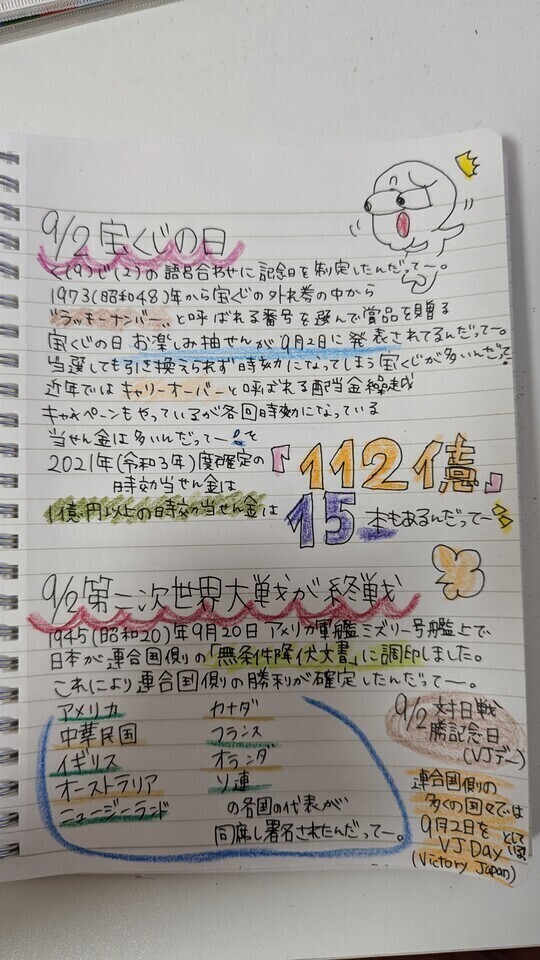 9/2 宝くじの日
く(9)じ(2)の語呂合わせに記念日を制定したんだってー。
1973(昭和48)年から宝くじの外れ券の中から
"ラッキーナンバー"と呼ばれる番号を選んで賞品を贈る
宝くじの日 お楽しみ抽せんが9月2日に発表されてるんだってー。
当選しても引き換えられず時効になってしまう宝くじが多いんだって!
近年ではキャリーオーバーと呼ばれる配当金繰越
キャンペーンもやっているが各回時効になっている
当せん金は多いんだってー!
2021年(令和3年)度確定の
時効当せん金は
「112億」
1億円以上の時効当せん金は
15本もあるんだってー
9/2 第二次世界大戦が終戦
1945(昭和20)年9月20日アメリカ軍艦ミズリー号艦上で、
日本が連合国側の「無条件降伏文書」に調印しました。
これにより連合国側の勝利が確定したんだってー。
アメリカ
中華民国
イギリス
オーストラリア
ニュージーランド
カナダ
フランス
オランダ
ソ連
の各国の代表が
同席し署名されたんだってー。
9/2 対日戦
勝記念日
(VJデー)
連合国側の
多くの国々では
9月2日を
VJ Day
(Victory Japan)
としている!